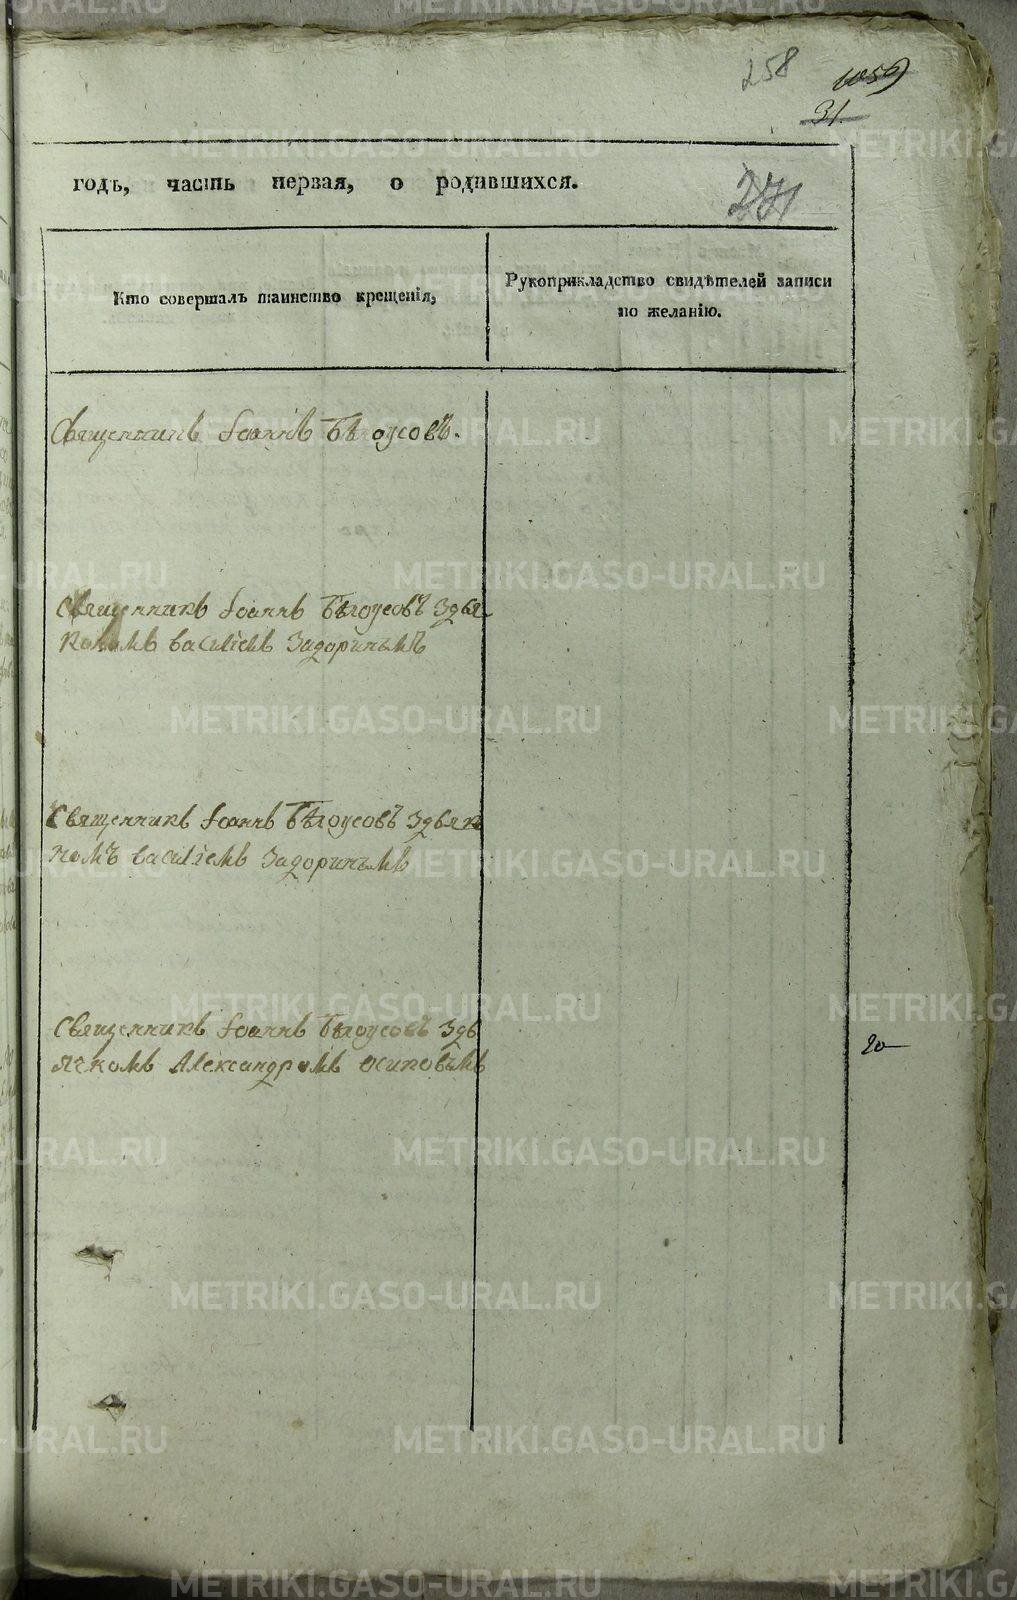 258
1059
31.
годъ, часть первая, о родившихся.
271
Кто совершалъ таинство крещенія,
Рукоприкладство свидѣтелей записи
по желанію.
Священникъ Іоаннъ Бѣлоусовъ.
Священникъ Іоаннъ Бѣлоусовъ здья-
кономъ василіемъ Задоринымъ
Священникъ Іоаннъ Бѣлоусовъ здьяко
номъ василіемъ Задоринымъ
Священникъ Іоаннъ Бѣлоусовъ здь
ячкомъ Александромъ осиповымъ
METRIKI.GASO-URAL.RU